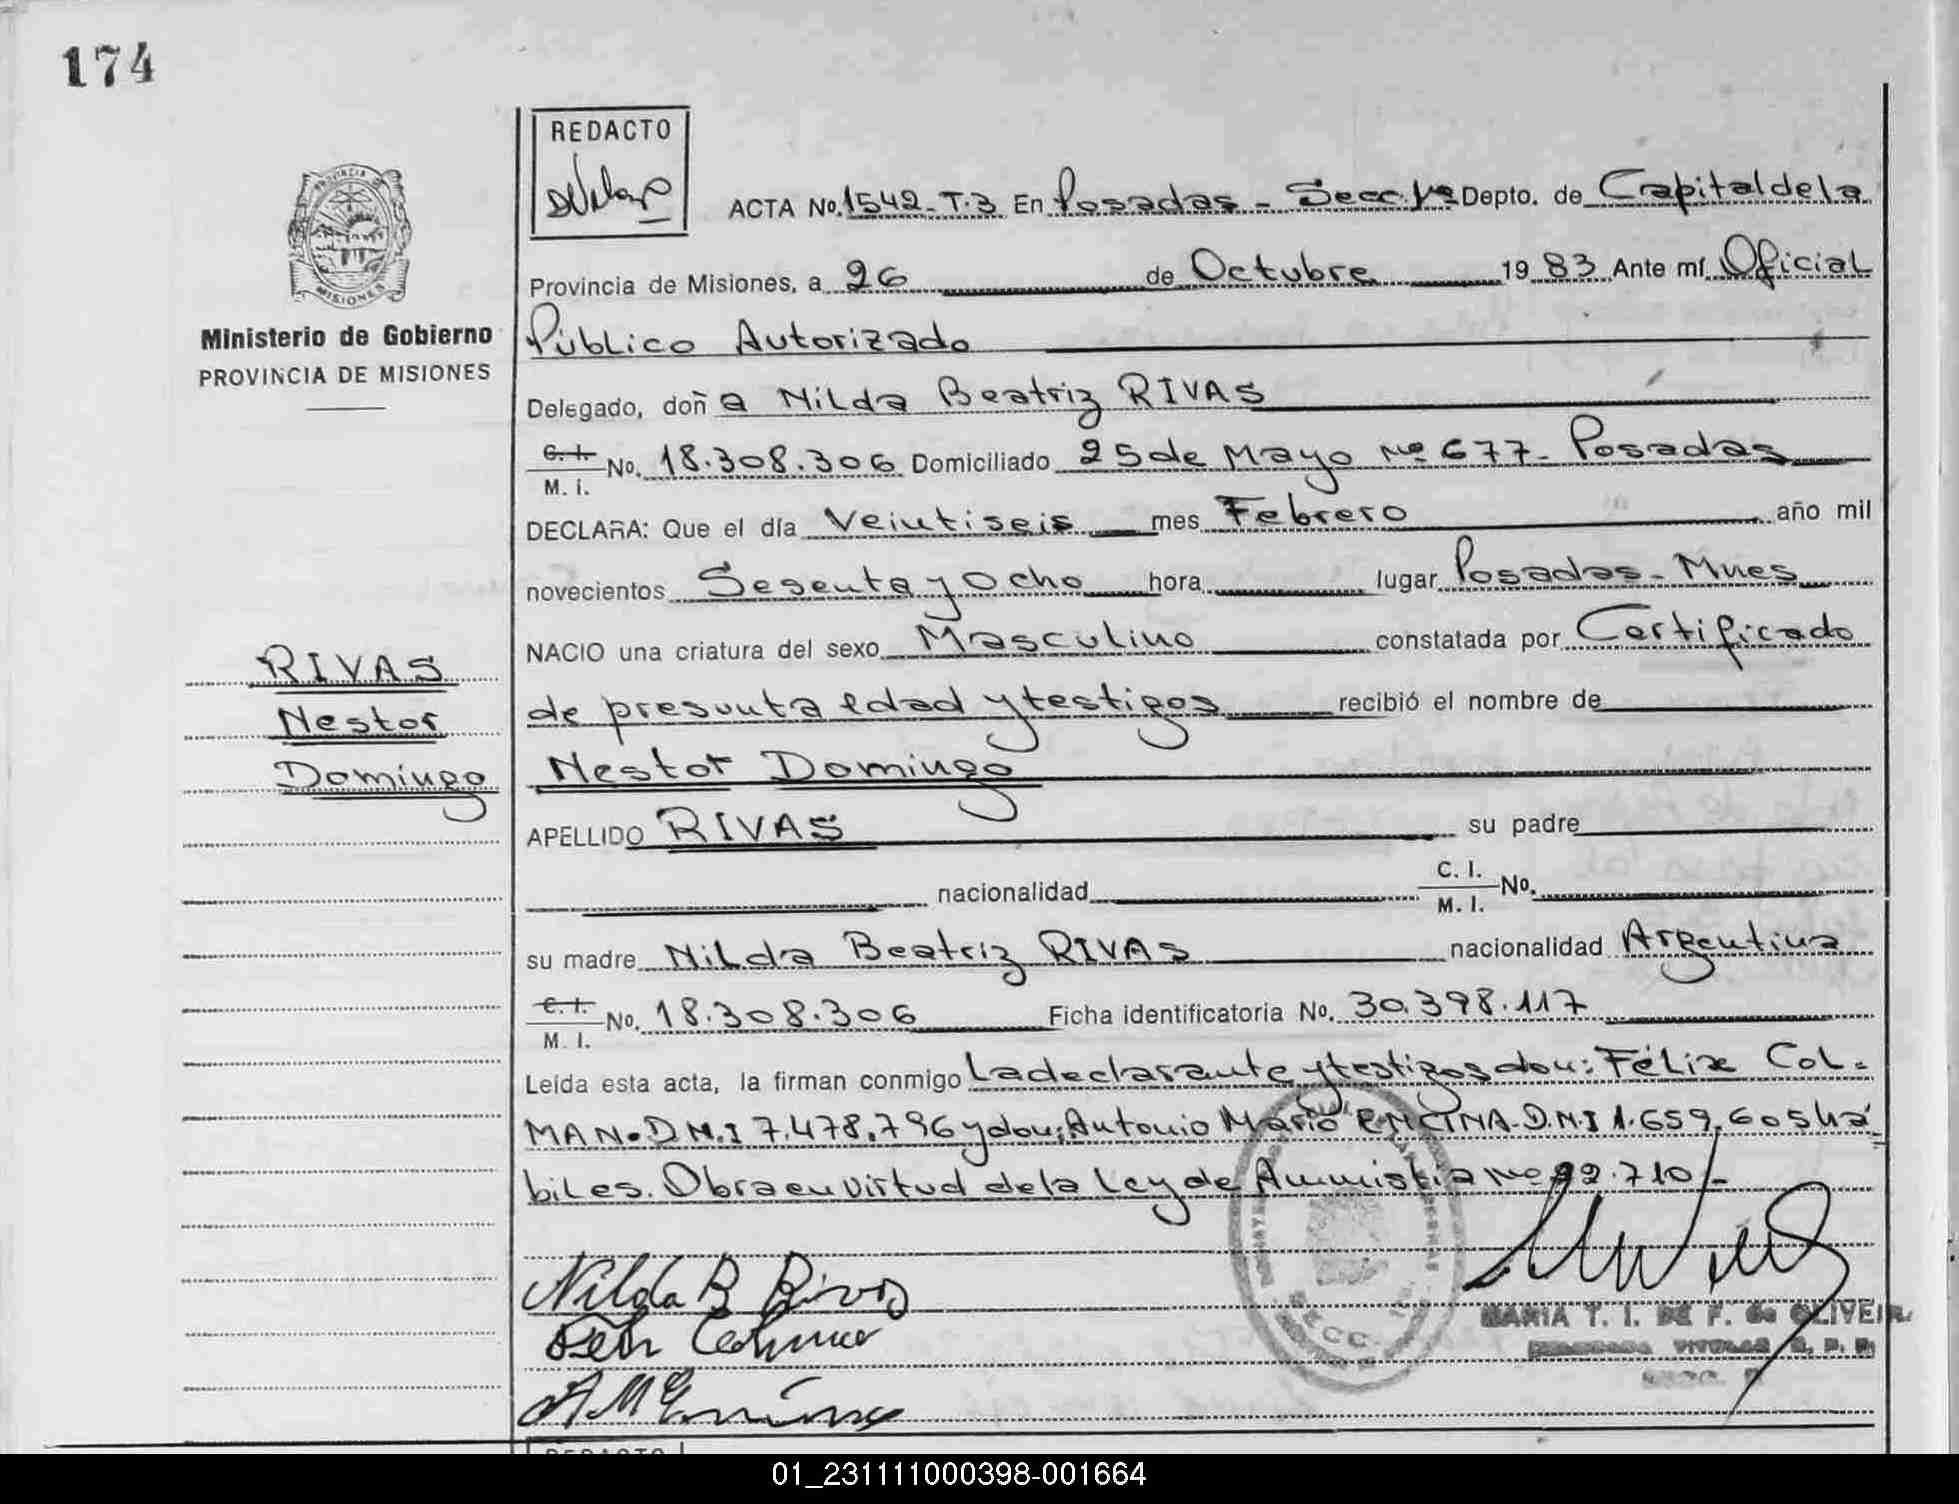 174
REDACTO
PROVINCIA DE
MISIONES
Ministerio de Gobierno
PROVINCIA DE MISIONES
ACTA No. 1542-T.3 En Posadas - Secc. 1ª Depto. de Capital de la
Provincia de Misiones, a 26 de Octubre 19 83 Ante mí Oficial
Público Autorizado
Delegado, doña Nilda Beatriz RIVAS
C. I. / M. I. No. 18.308.306 Domiciliado 25 de Mayo Nº 677 - Posadas
DECLARA: Que el día Veintiseis mes Febrero año mil
novecientos Sesenta y Ocho hora lugar Posadas - Mnes
NACIO una criatura del sexo Masculino constatada por Certificado
de presunta edad y testigos recibió el nombre de
RIVAS
Nestor
Domingo
Nestor Domingo
APELLIDO RIVAS su padre
nacionalidad C. I. / M. I. No.
su madre Nilda Beatriz RIVAS nacionalidad Argentina
C. I. / M. I. No. 18.308.306 Ficha identificatoria No. 30.398.117
Leída esta acta, la firman conmigo La declarante y testigos don: Félix COL-
MAN - D.N.I 7.478.796 y don: Antonio Mario ENCINA - D.N.I 1.659.605 há
biles. Obra en virtud de la Ley de Ammistía Nº 22.710 -
Nilda B Rivas
MARIA T. I. DE F. de OLIVEIRA
SECC.
REDACTO
01_231111000398-001664